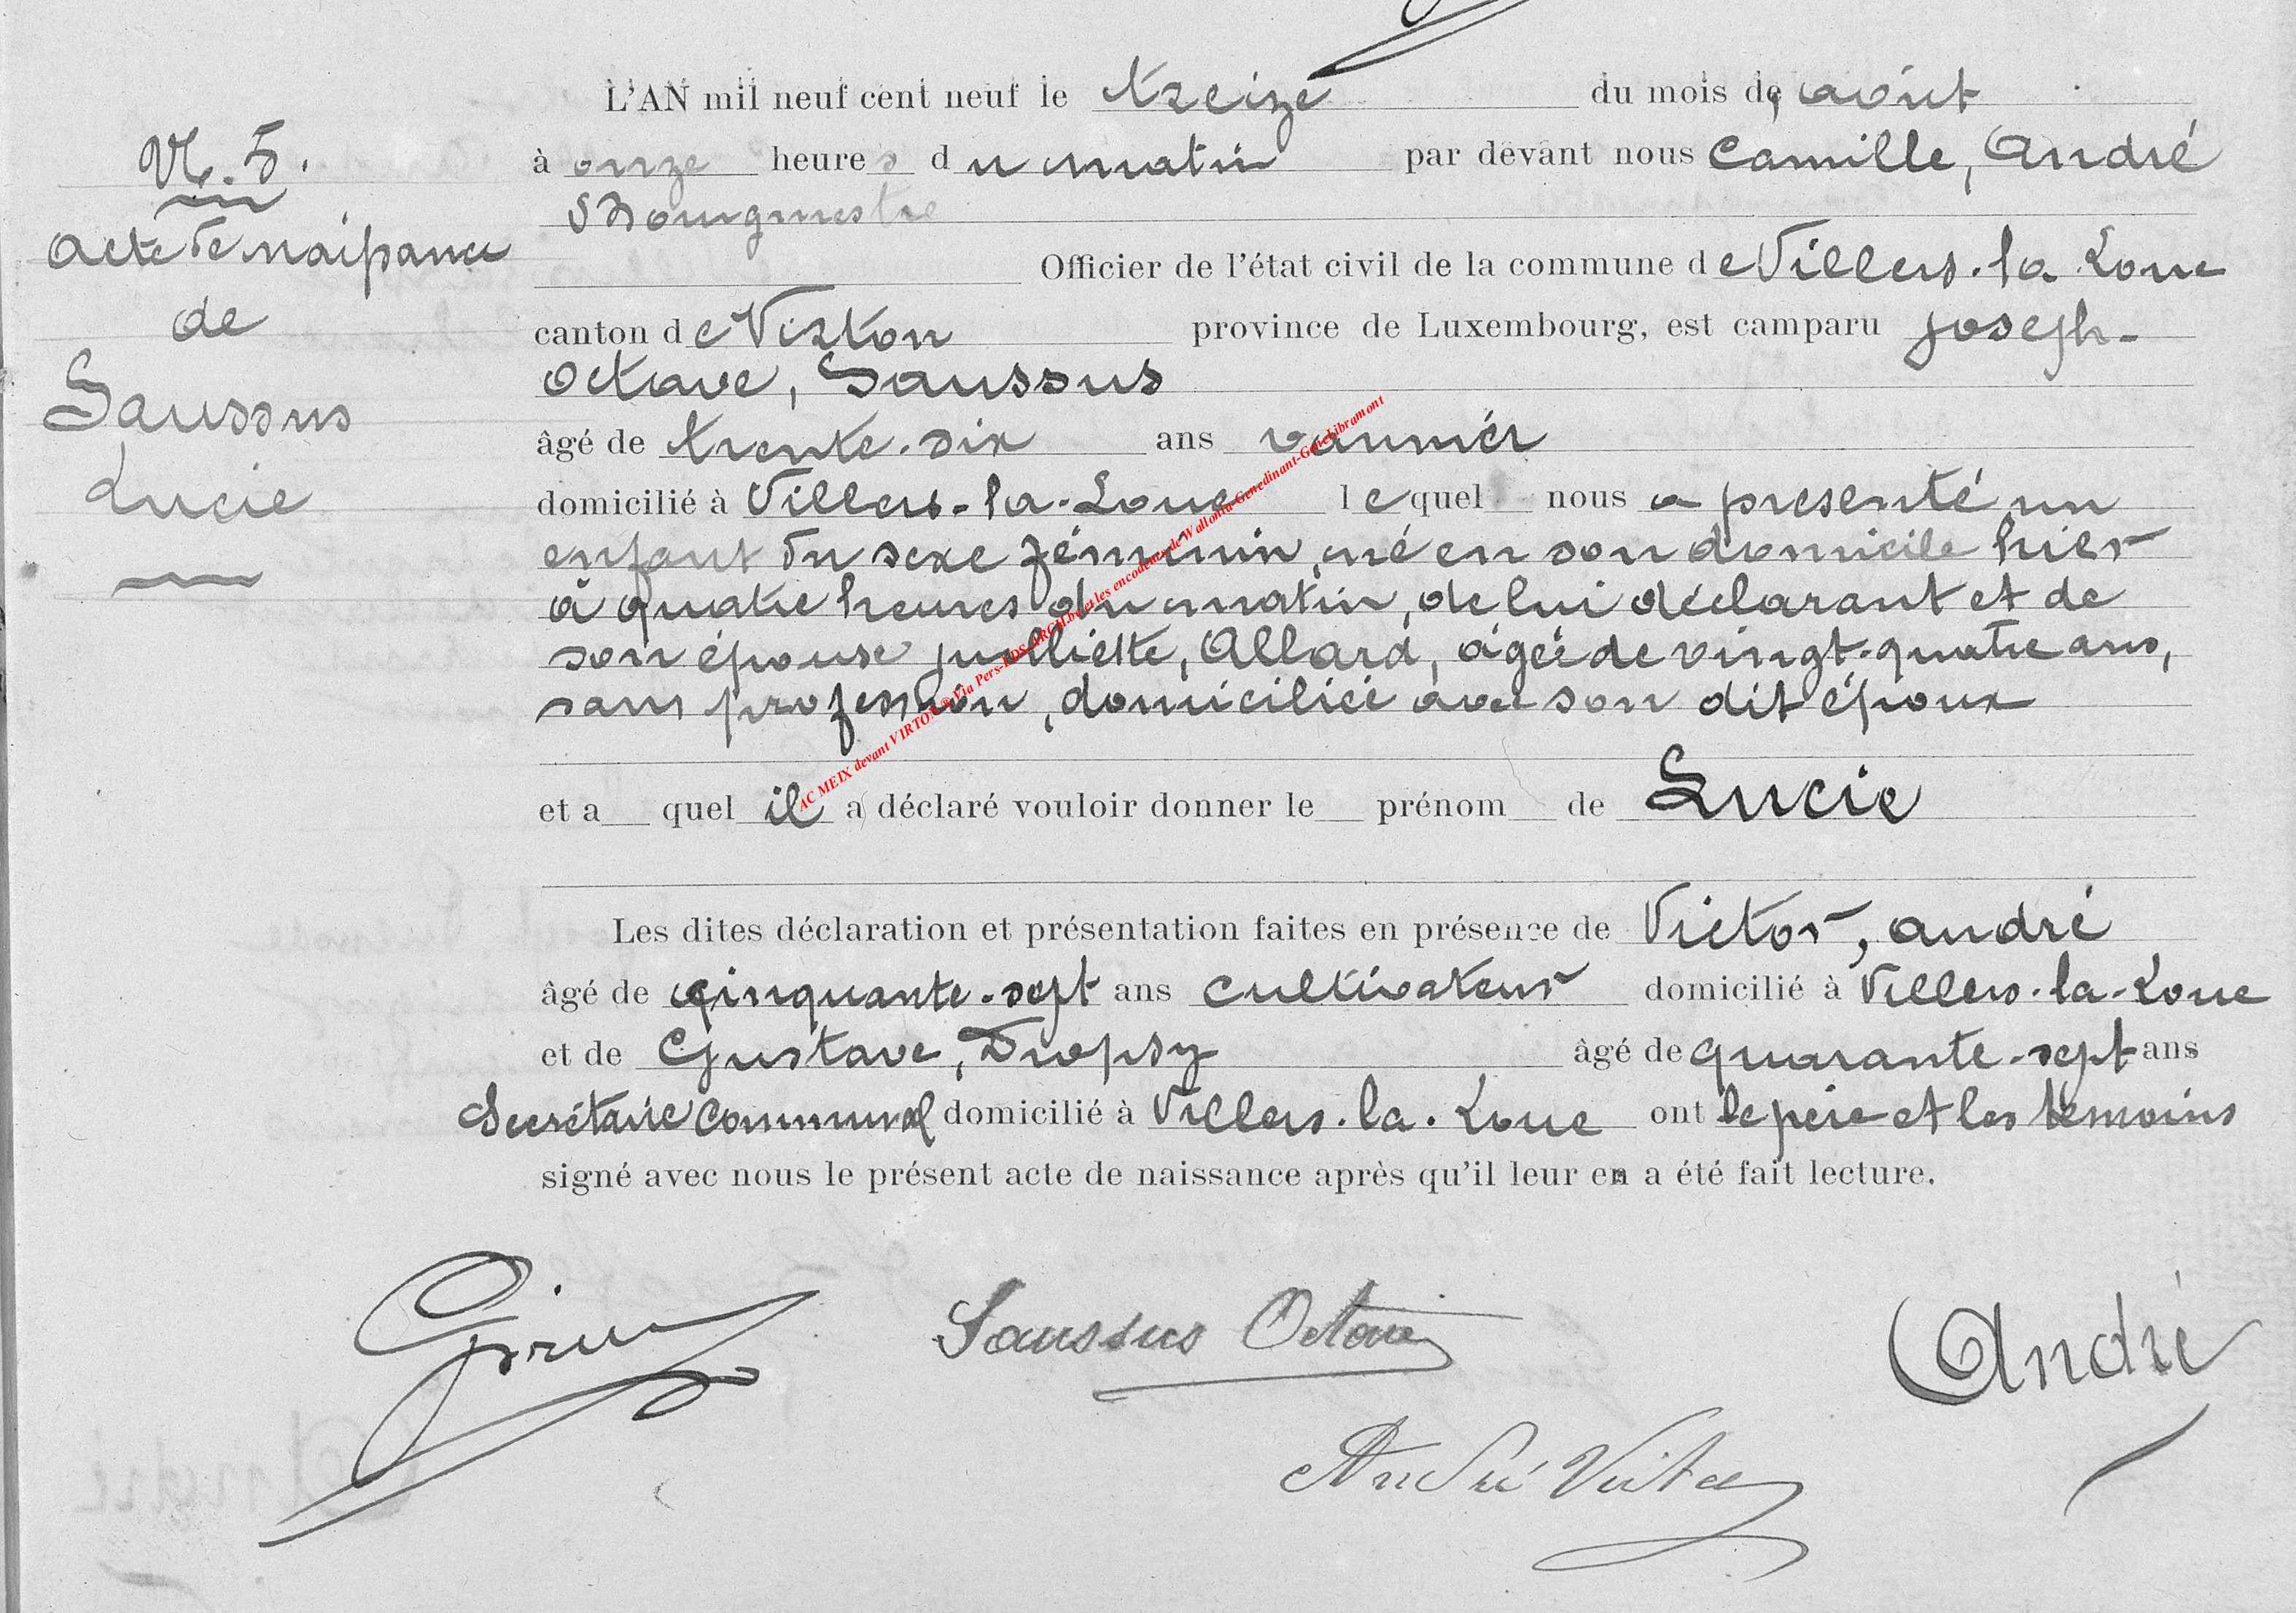 L'AN mil neuf cent neuf le treize du mois de, août
à onze heures du matin par devant nous Camille, André
Bourgmestre
Officier de l'état civil de la commune de Villers-la-Loue
canton de Virton province de Luxembourg, est camparu Joseph-
Octave, Saussus
âgé de trente-six ans vannier
domicilié à Villers-la-Loue lequel nous a presenté un
enfant du sexe féminin, né en son domicile hier
à quatre heures du matin, de lui déclarant et de
son épouse Julliette, Allard, âgée de vingt-quatre ans,
sans profession, domiciliée avec son dit époux
et a quel il a déclaré vouloir donner le prénom de Lucie
Les dites déclaration et présentation faites en présence de Victor, André
âgé de cinquante-sept ans cultivateur domicilié à Villers-la-Loue
et de Gustave, Dropsy âgé de quarante-sept ans
Secrétaire communal domicilié à Villers-la-Loue ont le père et les témoins
signé avec nous le présent acte de naissance après qu'il leur en a été fait lecture.
N. 5.
Acte de naissance
de
Saussus
Lucie
Saussus Octave
André
André Victor
AC MEIX devant VIRTON © Via Pers-EDS-ARCH.be et les encodeurs de Wallonia-Genedinant-Genelibramont